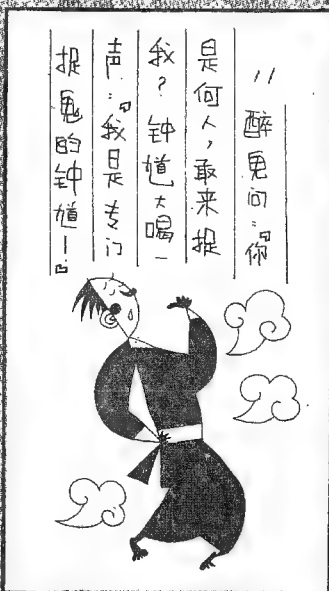 11 醉鬼问:『你
是何人,敢来捉
我?钟馗大喝一
声:『我是专门
捉鬼的钟馗!』